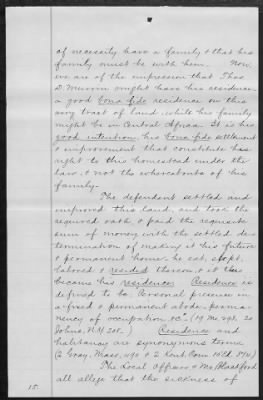 of necessity have a family & that his
family must be with him. Now
we are of the impression that Thos
D. might have his residence
a good bona fide residence on this
very tract of land, while his family
might be in Central Africa. It is his
good intention, his bona fide settlement
& improvement that constitutes his
right to this homestead under the
law, & not the whereabouts of his
family.
The defendent settled and
improved this land, and took the
required oath, & paid the requisite
sum of money with the settled de-
termination of making it his future
& permanent home. he eat, slept,
labored & resided thereon, & it thus
became his residence. Residence is
defined to be, Personal presence in
a fixed & permanent abode, perma-
nency of occupation, &c" (19 Me. 293. 20
Johns. N.Y. 208.) Residence and
habitancy are synonymous terms
(2 Gray, Mass, 490 &
The Local Officers &
all allege that the sickness of
15